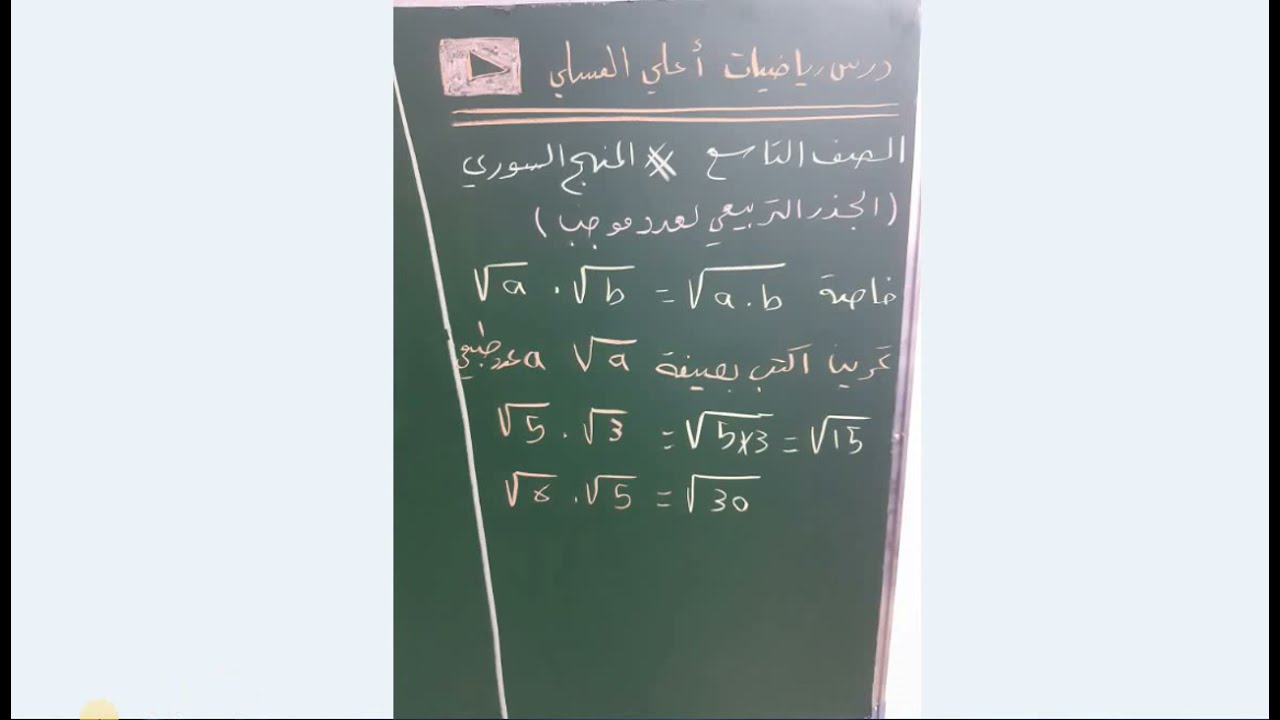 درس رياضيات أ علي العسلي
الصف التاسع * المنهج السوري
(الجذر التربيعي لعدد موجب)
خاصة √a . √b = √a.b
تمرين اكتب بصيغة √a a عدد طبيعي
√5 . √3 = √5×3 = √15
√5 = √30